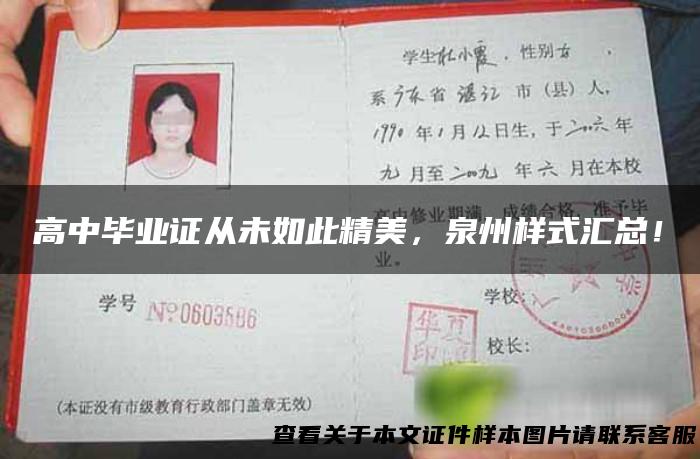 学生杜小霞，性别女，
系广东省湛江市（县）人，
1990年1月12日生，于二〇〇六年
九月至二〇〇九年六月在本校
高中修业期满，成绩合格，准予毕
业。
高中毕业证从未如此精美，泉州样式汇总！
学号 №0603586
学校：
华夏
印
校长：
（本证没有市级教育行政部门盖章无效）
查看关于本文证件样本图片请联系客服